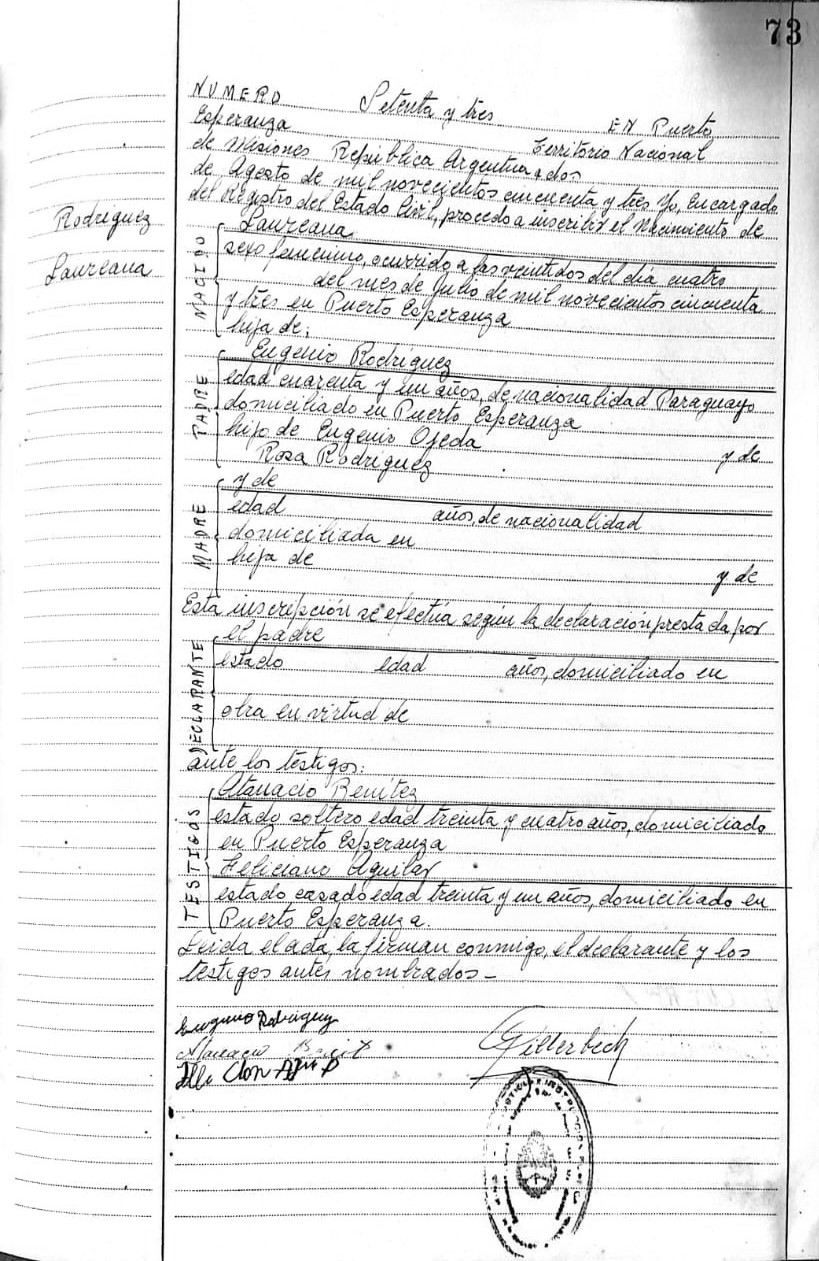 73
NUMERO Setenta y tres EN Puerto
Esperanza Territorio Nacional
de Misiones República Argentina, a dos
de Agosto de mil novecientos cincuenta y tres Yo, Encargado
del Registro del Estado Civil, procedo a inscribir el Nacimiento de
Rodriguez
Laureana
NACIDO
Laureana
sexo femenino, ocurrido a las veintidos del día cuatro
del mes de Julio de mil novecientos cincuenta
y tres en Puerto Esperanza
hija de:
PADRE
Eugenio Rodríguez
edad cuarenta y un años, de nacionalidad Paraguayo
domiciliado en Puerto Esperanza
hijo de Eugenio Ojeda y de
Rosa Rodríguez
MADRE
y de
edad años, de nacionalidad
domiciliada en
hija de y de
Esta inscripción se efectúa según la declaración prestada por
DECLARANTE
el padre
estado edad años, domiciliado en
obra en virtud de
ante los testigos:
TESTIGOS
Atanacio Benítez
estado soltero edad treinta y cuatro años, domiciliado
en Puerto Esperanza
Feliciano Aguilar
estado casado edad treinta y un años, domiciliado en
Puerto Esperanza.
Leida el acta, la firman conmigo, el declarante y los
testigos antes nombrados_
Eugenio Rodriguez